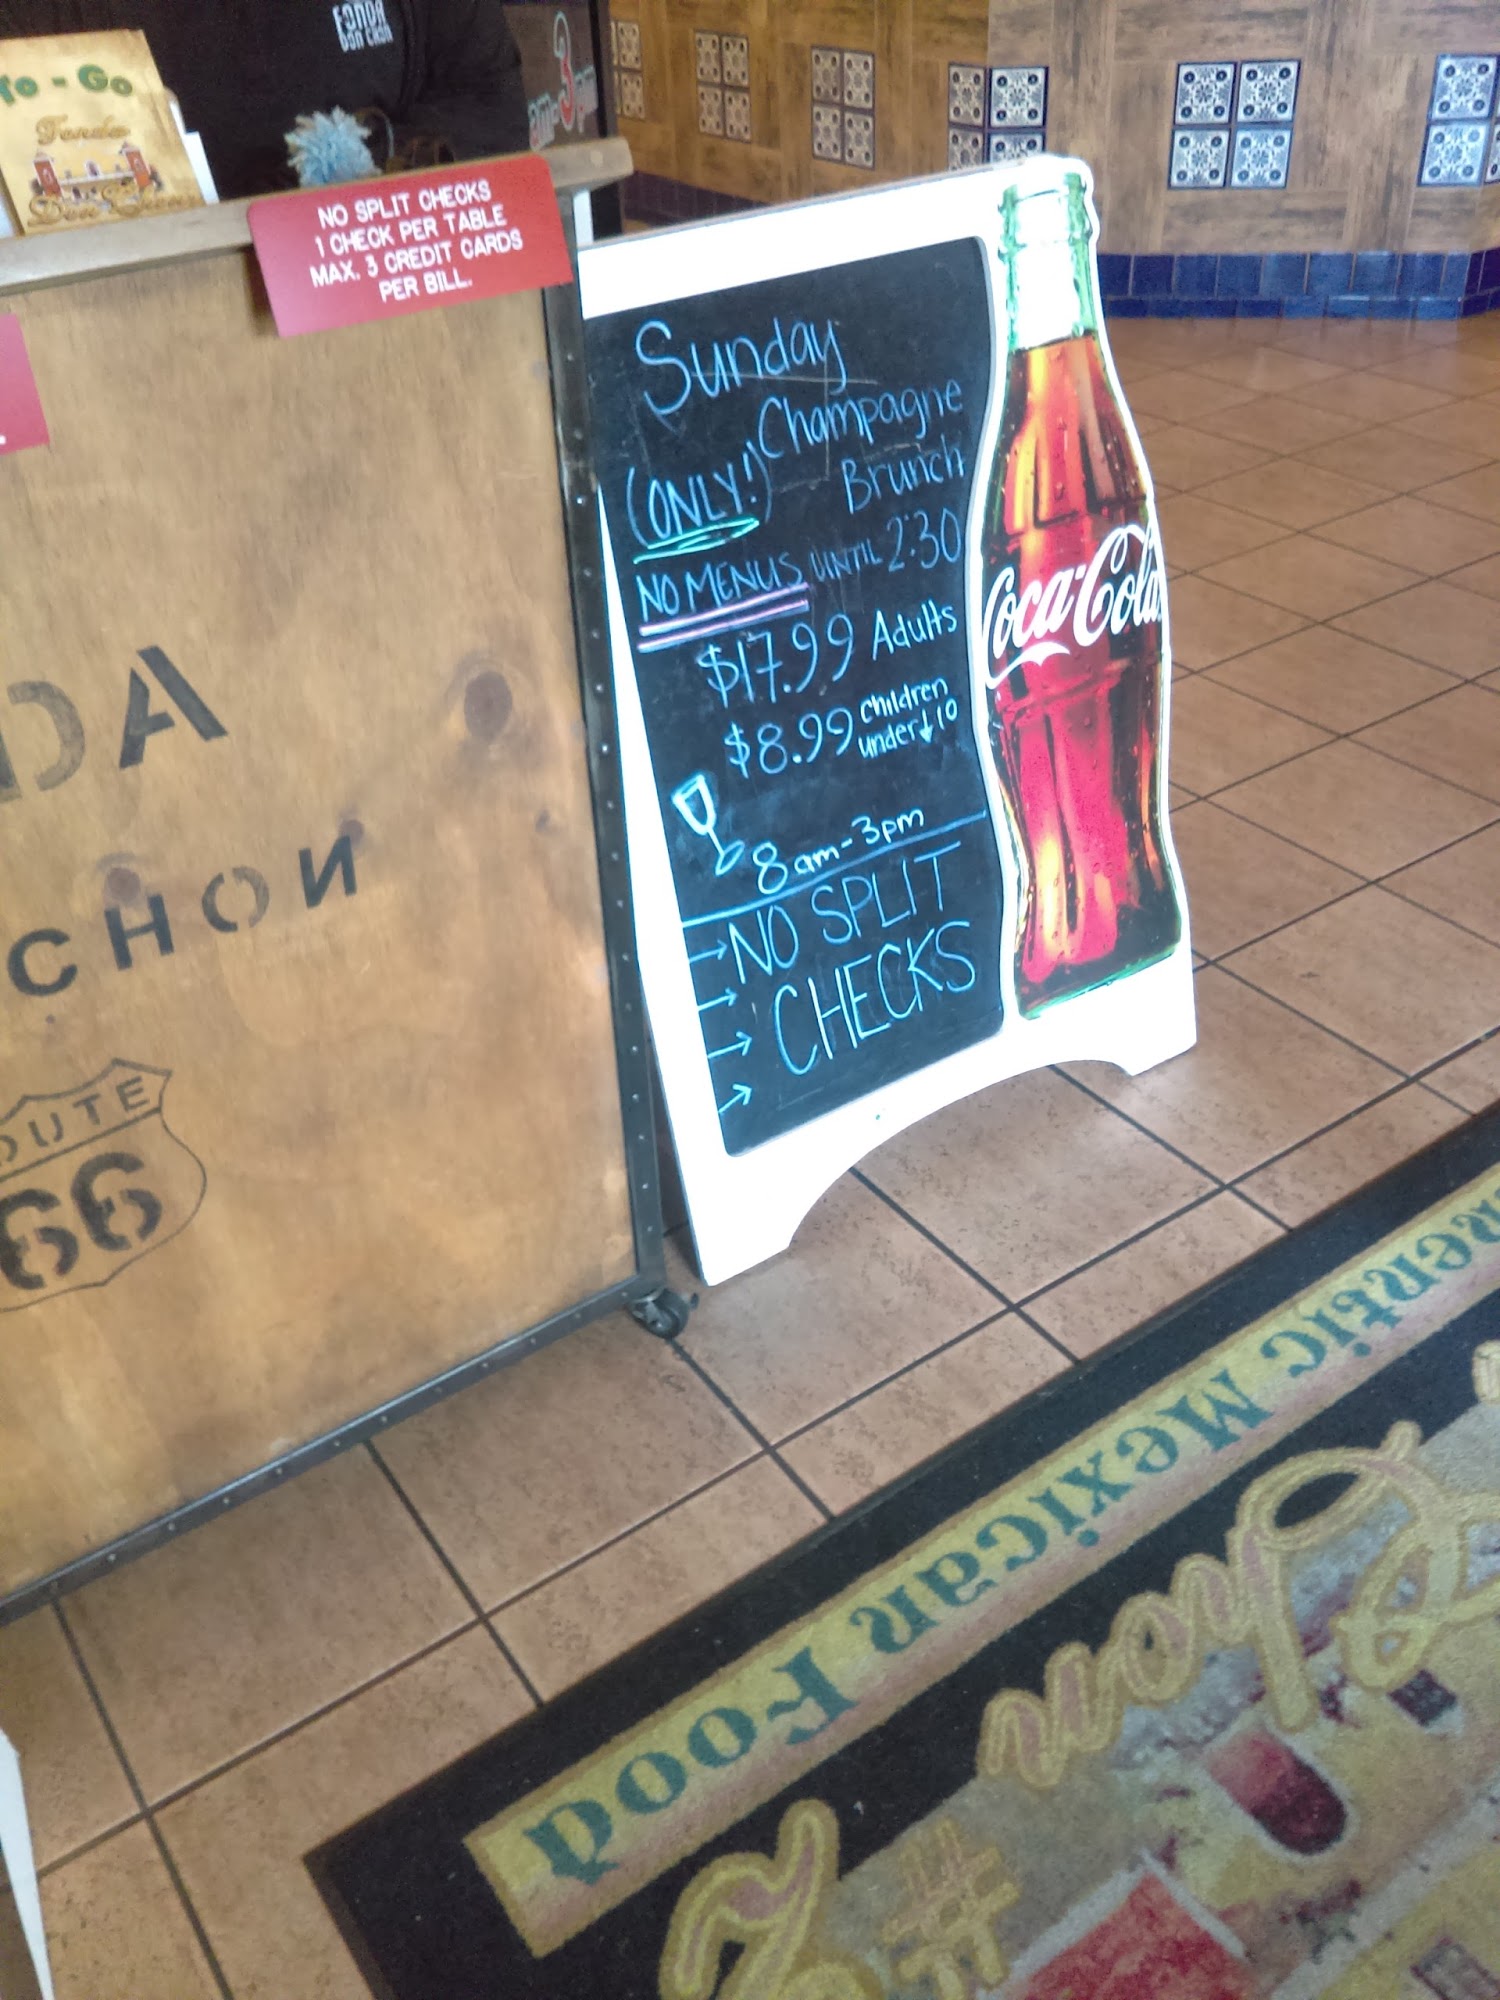 FONDA
DON CHON
To - Go
Fonda
Don Chon
am-3pm
NO SPLIT CHECKS
1 CHECK PER TABLE
MAX. 3 CREDIT CARDS
PER BILL.
Sunday
Champagne
(ONLY!) Brunch
NO MENUS UNTIL 2:30
$17.99 Adults
$8.99 children
under ↓ 10
8am-3pm
→ NO SPLIT
→ CHECKS
→
→
Coca-Cola
DA
CHON
OUTE
66
Authentic Mexican Food
Chon
#2